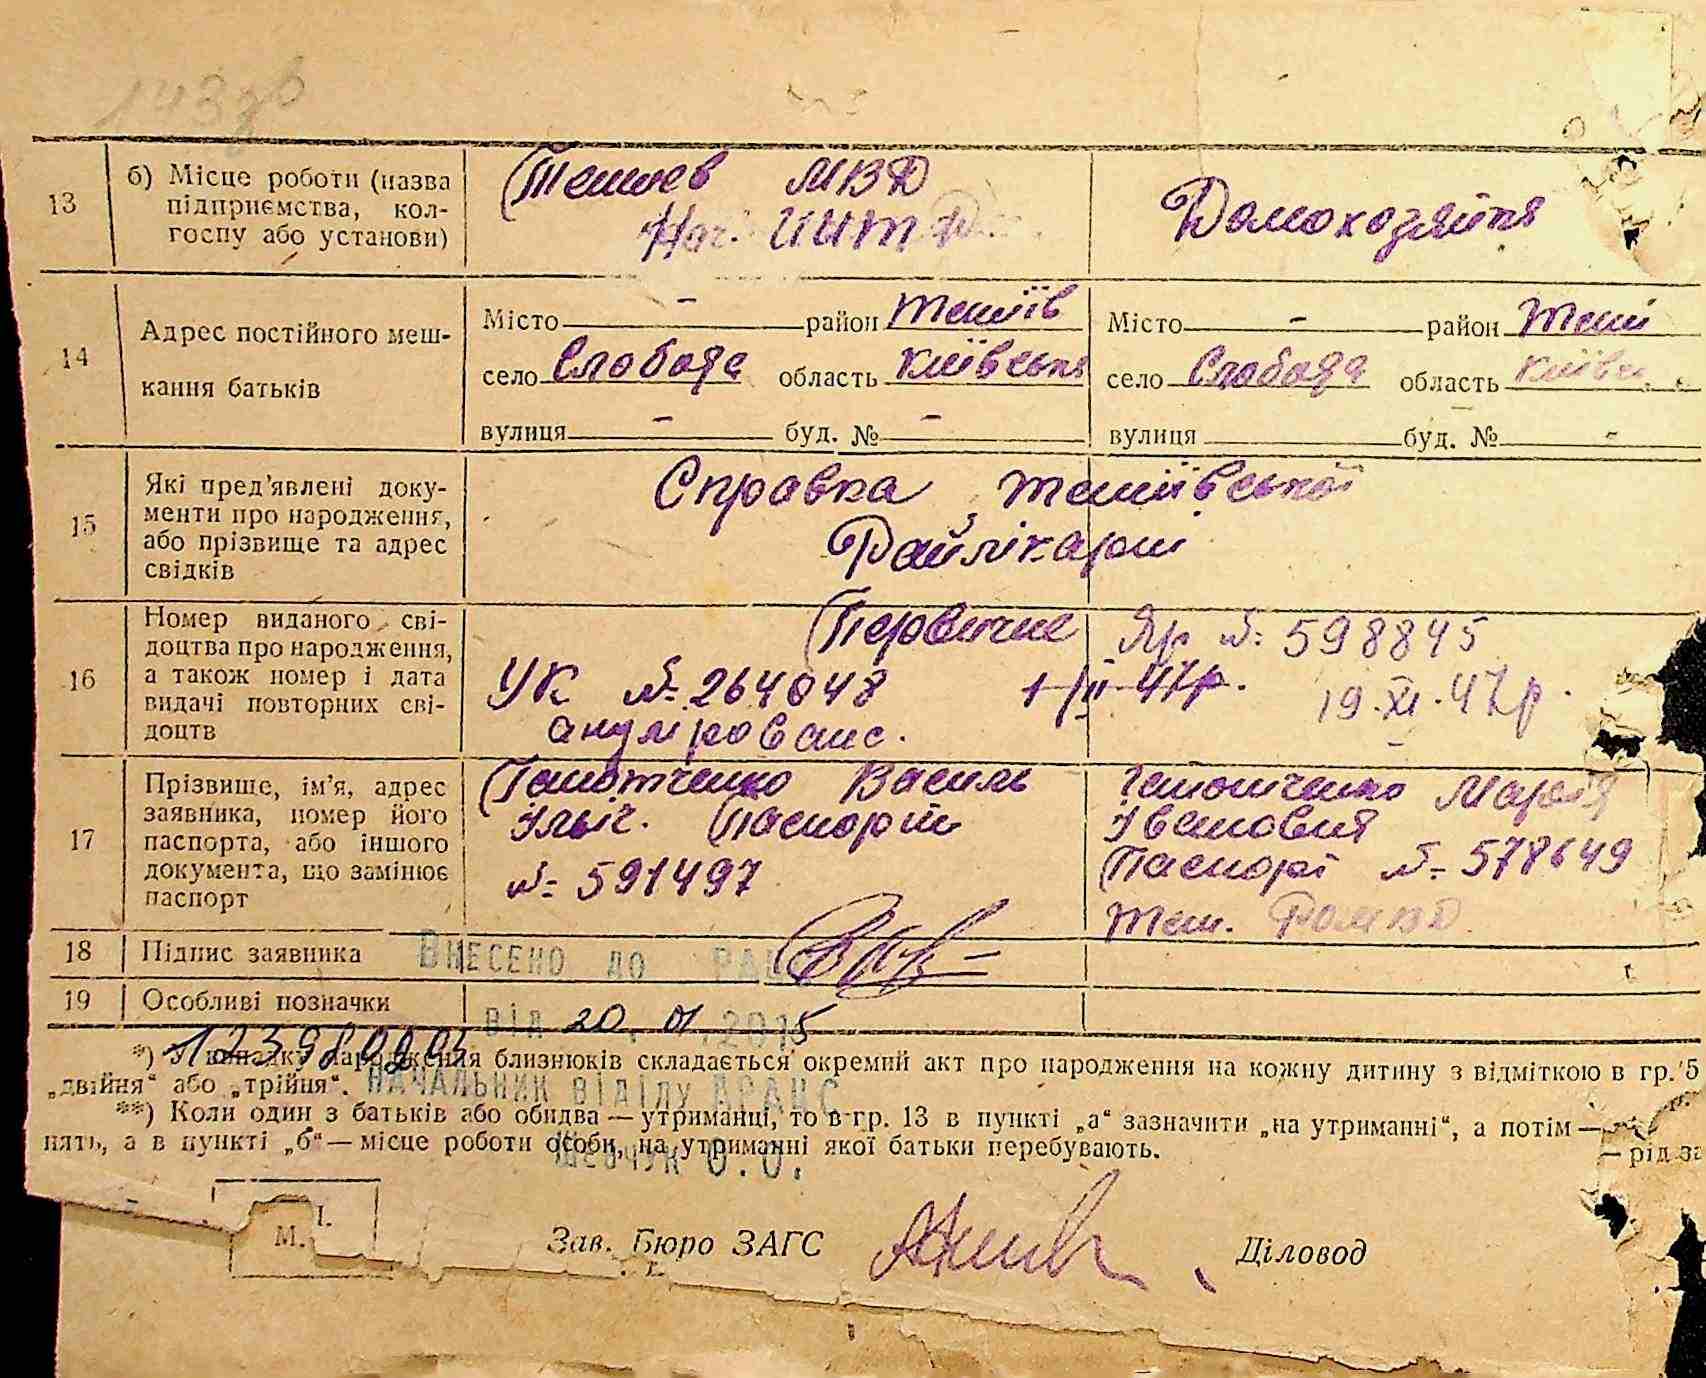 13
б) Місце роботи (назва
підприємства, кол-
госпу або установи)
МВД
Нач.
Домохозяйка
14
Адрес постійного меш-
кання батьків
Місто - район Тетіїв
село Слобода область Київська
вулиця - буд. № -
Місто - район Теті
село Слобода область Київсь
вулиця буд. № -
15
Які пред'явлені доку-
менти про народження,
або прізвище та адрес
свідків
Справка Тетіївської
Райлікарні
16
Номер виданого сві-
доцтва про народження,
а також номер і дата
видачі повторних сві-
доцтв
Первичне
УК № 264048 1/II 47р.
анулровано.
Яр № 598845
19.XI.47р.
17
Прізвище, ім'я, адрес
заявника, номер його
паспорта, або іншого
документа, що замінює
паспорт
Василь
Ільіч. Паспорт
№ 591497
Марія
Івановна
Паспорт № 578649
Тет.
18
Підпис заявника
Внесено до
19
Особливі позначки
від 20. 01. 2015
*) У випадку народження близнюків складається окремий акт про народження на кожну дитину з відміткою в гр. 5
„двійня“ або „трійня“.
начальник відділу ДРАЦС
**) Коли один з батьків або обидва — утриманці, то в гр. 13 в пункті „а“ зазначити „на утриманні“, а потім —
нять, а в пункті „б“ — місце роботи особи, на утриманні якої батьки перебувають.
— рід за
Шевчук О.О.
М.
Зав. Бюро ЗАГС
Діловод